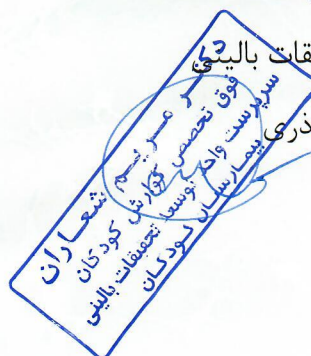 قات بالینی
ذری
دکتر مریم شعاران
فوق تخصص گوارش کودکان
سرپرست واحد توسعه تحقیقات بالینی
بیمارستان کودکان